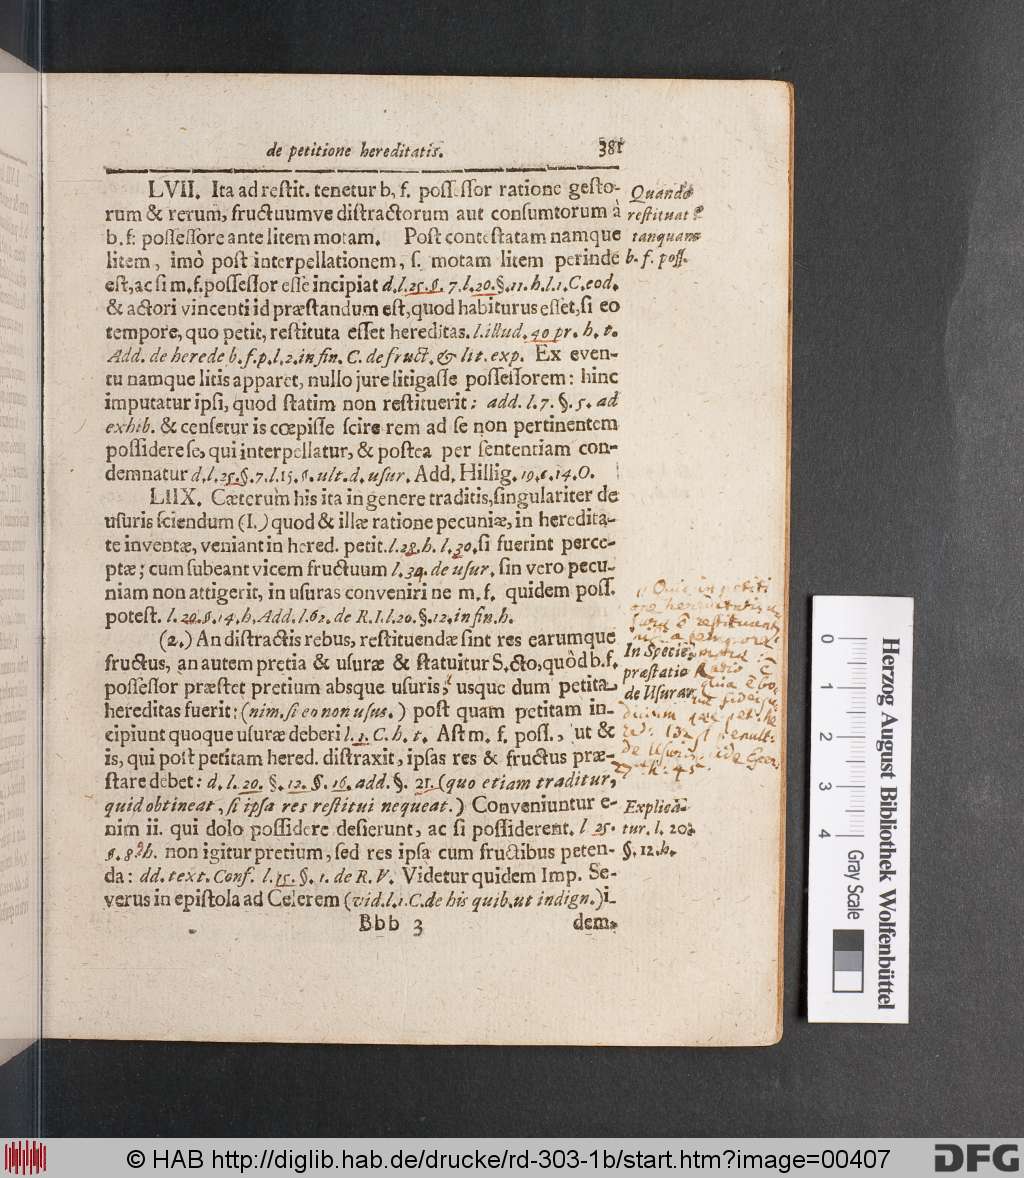 de petitione hereditatis. 381
LVII. Ita ad reſtit. tenetur b, f. poſſeſſor ratione geſto-
rum & rerum, fructuumve diſtractorum aut conſumtorum à
b. f: poſſeſſore ante litem motam. Poſt conteſtatam namque
litem, imò poſt interpellationem, ſ. motam litem perinde
eſt, ac ſi m. f. poſſeſſor eſſe incipiat d. l. 25. §. 7. l. 20. §. 11. h. l. 1. C. eod.
& actori vincenti id præſtandum eſt, quod habiturus eſſet, ſi eo
tempore, quo petit, reſtituta eſſet hereditas. l. illud. 40 pr. h. t.
Add. de herede b. f. p. l. 2. in fin. C. de fruct. & lit. exp. Ex even-
tu namque litis apparet, nullo jure litigaſſe poſſeſſorem: hinc
imputatur ipſi, quod ſtatim non reſtituerit: add. l. 7. §. 5. ad
exhib. & cenſetur is cœpiſſe ſcire rem ad ſe non pertinentem
poſſidere ſe, qui interpellatur, & poſtea per ſententiam con-
demnatur d. l. 25. §. 7. l. 15. §. ult. d. uſur. Add. Hillig. 19. c. 14. O.
Quando
reſtituat
tanquam
b. f. poſſ.
LIIX. Cæterum his ita in genere traditis, ſingulariter de
uſuris ſciendum (I.) quod & illæ ratione pecuniæ, in heredita-
te inventæ, veniant in hered. petit. l. 28. h. l. 30. ſi fuerint perce-
ptæ; cum ſubeant vicem fructuum l. 34. de uſur. ſin vero pecu-
niam non attigerit, in uſuras conveniri ne m. f. quidem poſſ.
poteſt. l. 20. §. 14. h. Add. l. 62. de R. I. l. 20. §. 12. in fin. h.
(2.) An diſtractis rebus, reſtituendæ ſint res earumque
fructus, an autem pretia & uſuræ & ſtatuitur S. cto, quòd b. f.
poſſeſſor præſtet pretium absque uſuris, usque dum petita
hereditas fuerit: (nim. ſi eo non uſus.) poſt quam petitam in-
cipiunt quoque uſuræ deberi l. 1. C. h. t. Aſt m. f. poſſ., ut &
is, qui poſt petitam hered. diſtraxit, ipſas res & fructus præ-
ſtare debet: d. l. 20. §. 12. §. 16. add. §. 21. (quo etiam traditur,
quid obtineat, ſi ipſa res reſtitui nequeat.) Conveniuntur e-
nim ii. qui dolo poſſidere deſierunt, ac ſi poſſiderent. l 25.
§. 8. h. non igitur pretium, ſed res ipſa cum fructibus peten-
da: dd. text. Conf. l. 15. §. 1. de R. V. Videtur quidem Imp. Se-
verus in epiſtola ad Celerem (vid. l. 1. C. de his quib. ut indign.) i-
In Specie
præſtatio
de Uſurar.
Explica-
tur. l. 20.
§. 12. h.
Bbb 3 dem
0 1 2 3 4
Gray Scale
Herzog August Bibliothek Wolfenbüttel
© HAB http://diglib.hab.de/drucke/rd-303-1b/start.htm?image=00407
DFG